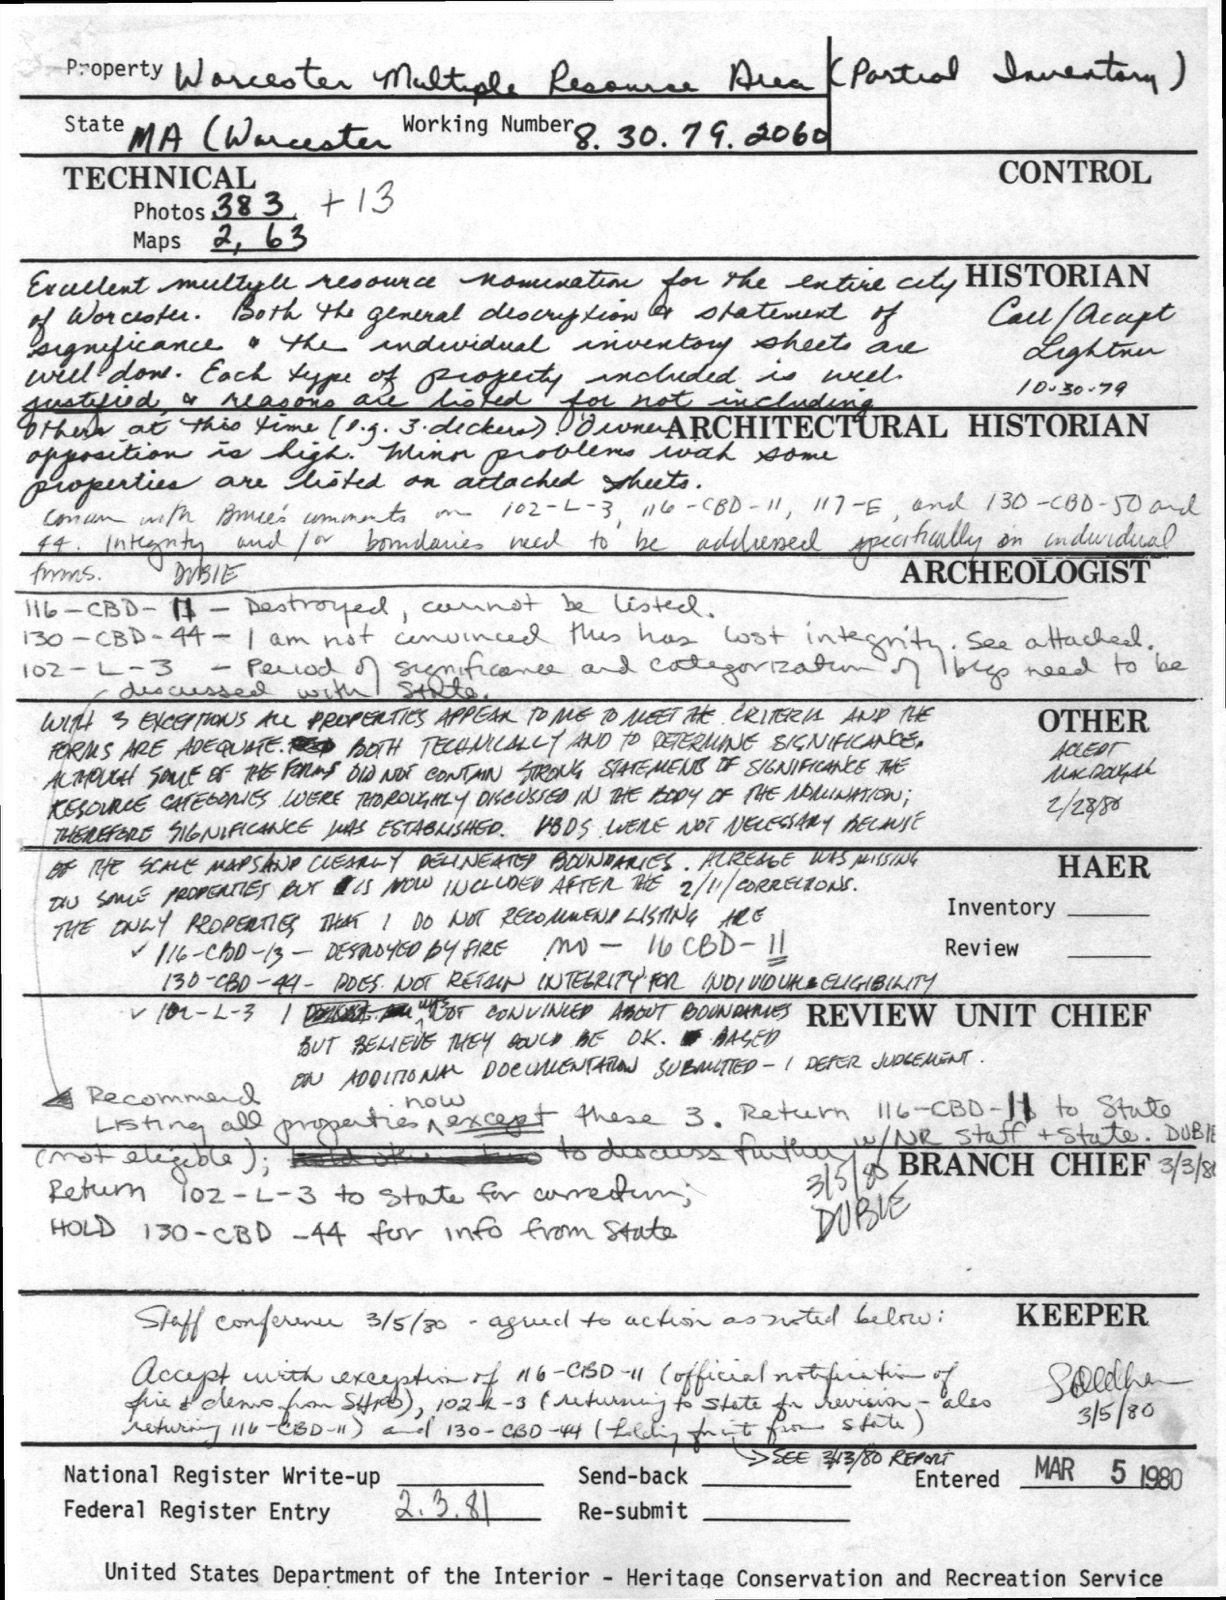 Property Worcester Multiple Resource Area (Partial Inventory)
State MA (Worcester Working Number 8.30.79.2060
TECHNICAL CONTROL
Photos 383 + 13
Maps 2, 63
Excellent multiple resource nomination for the entire city HISTORIAN
of Worcester. Both the general description & statement of Call/Accept
significance & the individual inventory sheets are Lightner
well done. Each type of property included is well 10.30.79
justified, & reasons are listed for not including
others at this time (e.g. 3-deckers). Owner ARCHITECTURAL HISTORIAN
opposition is high. Minor problems with some
properties are listed on attached sheets.
Concur with Bruce's comments on 102-L-3, 116-CBD-11, 117-E, and 130-CBD-50 and
44. Integrity and/or boundaries need to be addressed specifically on individual
forms. DUBIE ARCHEOLOGIST
116-CBD-11 - Destroyed, cannot be listed.
130-CBD-44 - I am not convinced this has lost integrity. See attached.
102-L-3 - Period of significance and categorization of bldgs need to be
discussed with State.
WITH 3 EXCEPTIONS ALL PROPERTIES APPEAR TO ME TO MEET THE CRITERIA AND THE OTHER
FORMS ARE ADEQUATE. BOTH TECHNICALLY AND TO DETERMINE SIGNIFICANCE. ACCEPT
ALTHOUGH SOME OF THE FORMS DID NOT CONTAIN STRONG STATEMENTS OF SIGNIFICANCE THE MACDOUGAL
RESOURCE CATEGORIES WERE THOROUGHLY DISCUSSED IN THE BODY OF THE NOMINATION; 2/28/80
THEREFORE SIGNIFICANCE WAS ESTABLISHED. VBDS WERE NOT NECESSARY BECAUSE
OF THE SCALE MAPS AND CLEARLY DELINEATED BOUNDARIES. ACREAGE WAS MISSING HAER
ON SOME PROPERTIES BUT IS NOW INCLUDED AFTER THE 2/11/CORRECTIONS.
THE ONLY PROPERTIES THAT I DO NOT RECOMMEND LISTING ARE Inventory
✓ 116-CBD-13 - DESTROYED BY FIRE NO - 116 CBD-11 Review
130-CBD-44 - DOES NOT RETAIN INTEGRITY FOR INDIVIDUAL ELIGIBILITY
✓ 102-L-3 I was NOT CONVINCED ABOUT BOUNDARIES REVIEW UNIT CHIEF
BUT BELIEVE THEY COULD BE OK. BASED
ON ADDITIONAL DOCUMENTATION SUBMITTED - I DEFER JUDGEMENT.
Recommend
Listing all properties now except these 3. Return 116-CBD-11 to State
(not eligible); to discuss further w/NR staff + State. DUBIE
BRANCH CHIEF 3/3/80
Return 102-L-3 to State for correction; 3/5/80
HOLD 130-CBD-44 for info from State DUBIE
Staff conference 3/5/80 - agreed to action as noted below: KEEPER
Accept with exception of 116-CBD-11 (official notification of
fire & demo from SHPO), 102-L-3 (returning to State for revision - also 3/5/80
returning 116-CBD-11) and 130-CBD-44 (holding for info from State)
SEE 3/13/80 REPORT
National Register Write-up Send-back Entered MAR 5 1980
Federal Register Entry 2.3.81 Re-submit
United States Department of the Interior - Heritage Conservation and Recreation Service